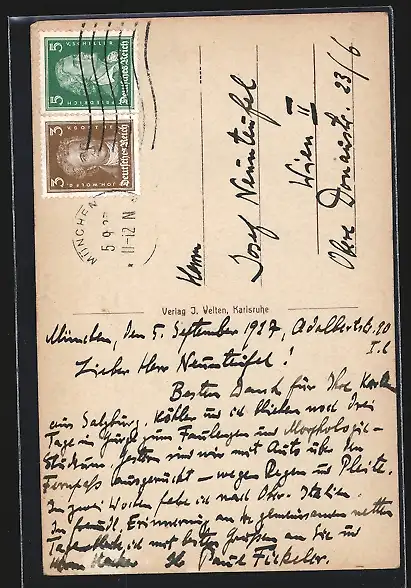 5 FRIEDRICH V. SCHILLER 5
Deutsches Reich
3 JOH. WOLFG. V. GOETHE 3
Deutsches Reich
MÜNCHEN
5.9.27
11-12 N
Herrn
Josef Neunteufel
Wien II
Obere Donaustr. 23/6
Verlag J. Velten, Karlsruhe
München, den 5. September 1927, Adalbertstr. 90
I. l.
Lieber Herr Neunteufel!
Besten Dank für Ihre Karten
aus Salzburg. Köhler und ich blieben noch drei
Tage in Gurgl zum Faulenzen und Morphologie-
Studium. Gestern sind wir mit Auto über den
Fernpass ausgerückt – wegen Regen und Pleite.
In zwei Wochen fahre ich nach Ober-Italien.
In freundl. Erinnerung an die gemeinsamen netten
Tage bleibe ich mit besten Grüssen an Sie und
Herrn Ihr Paul Fickeler.